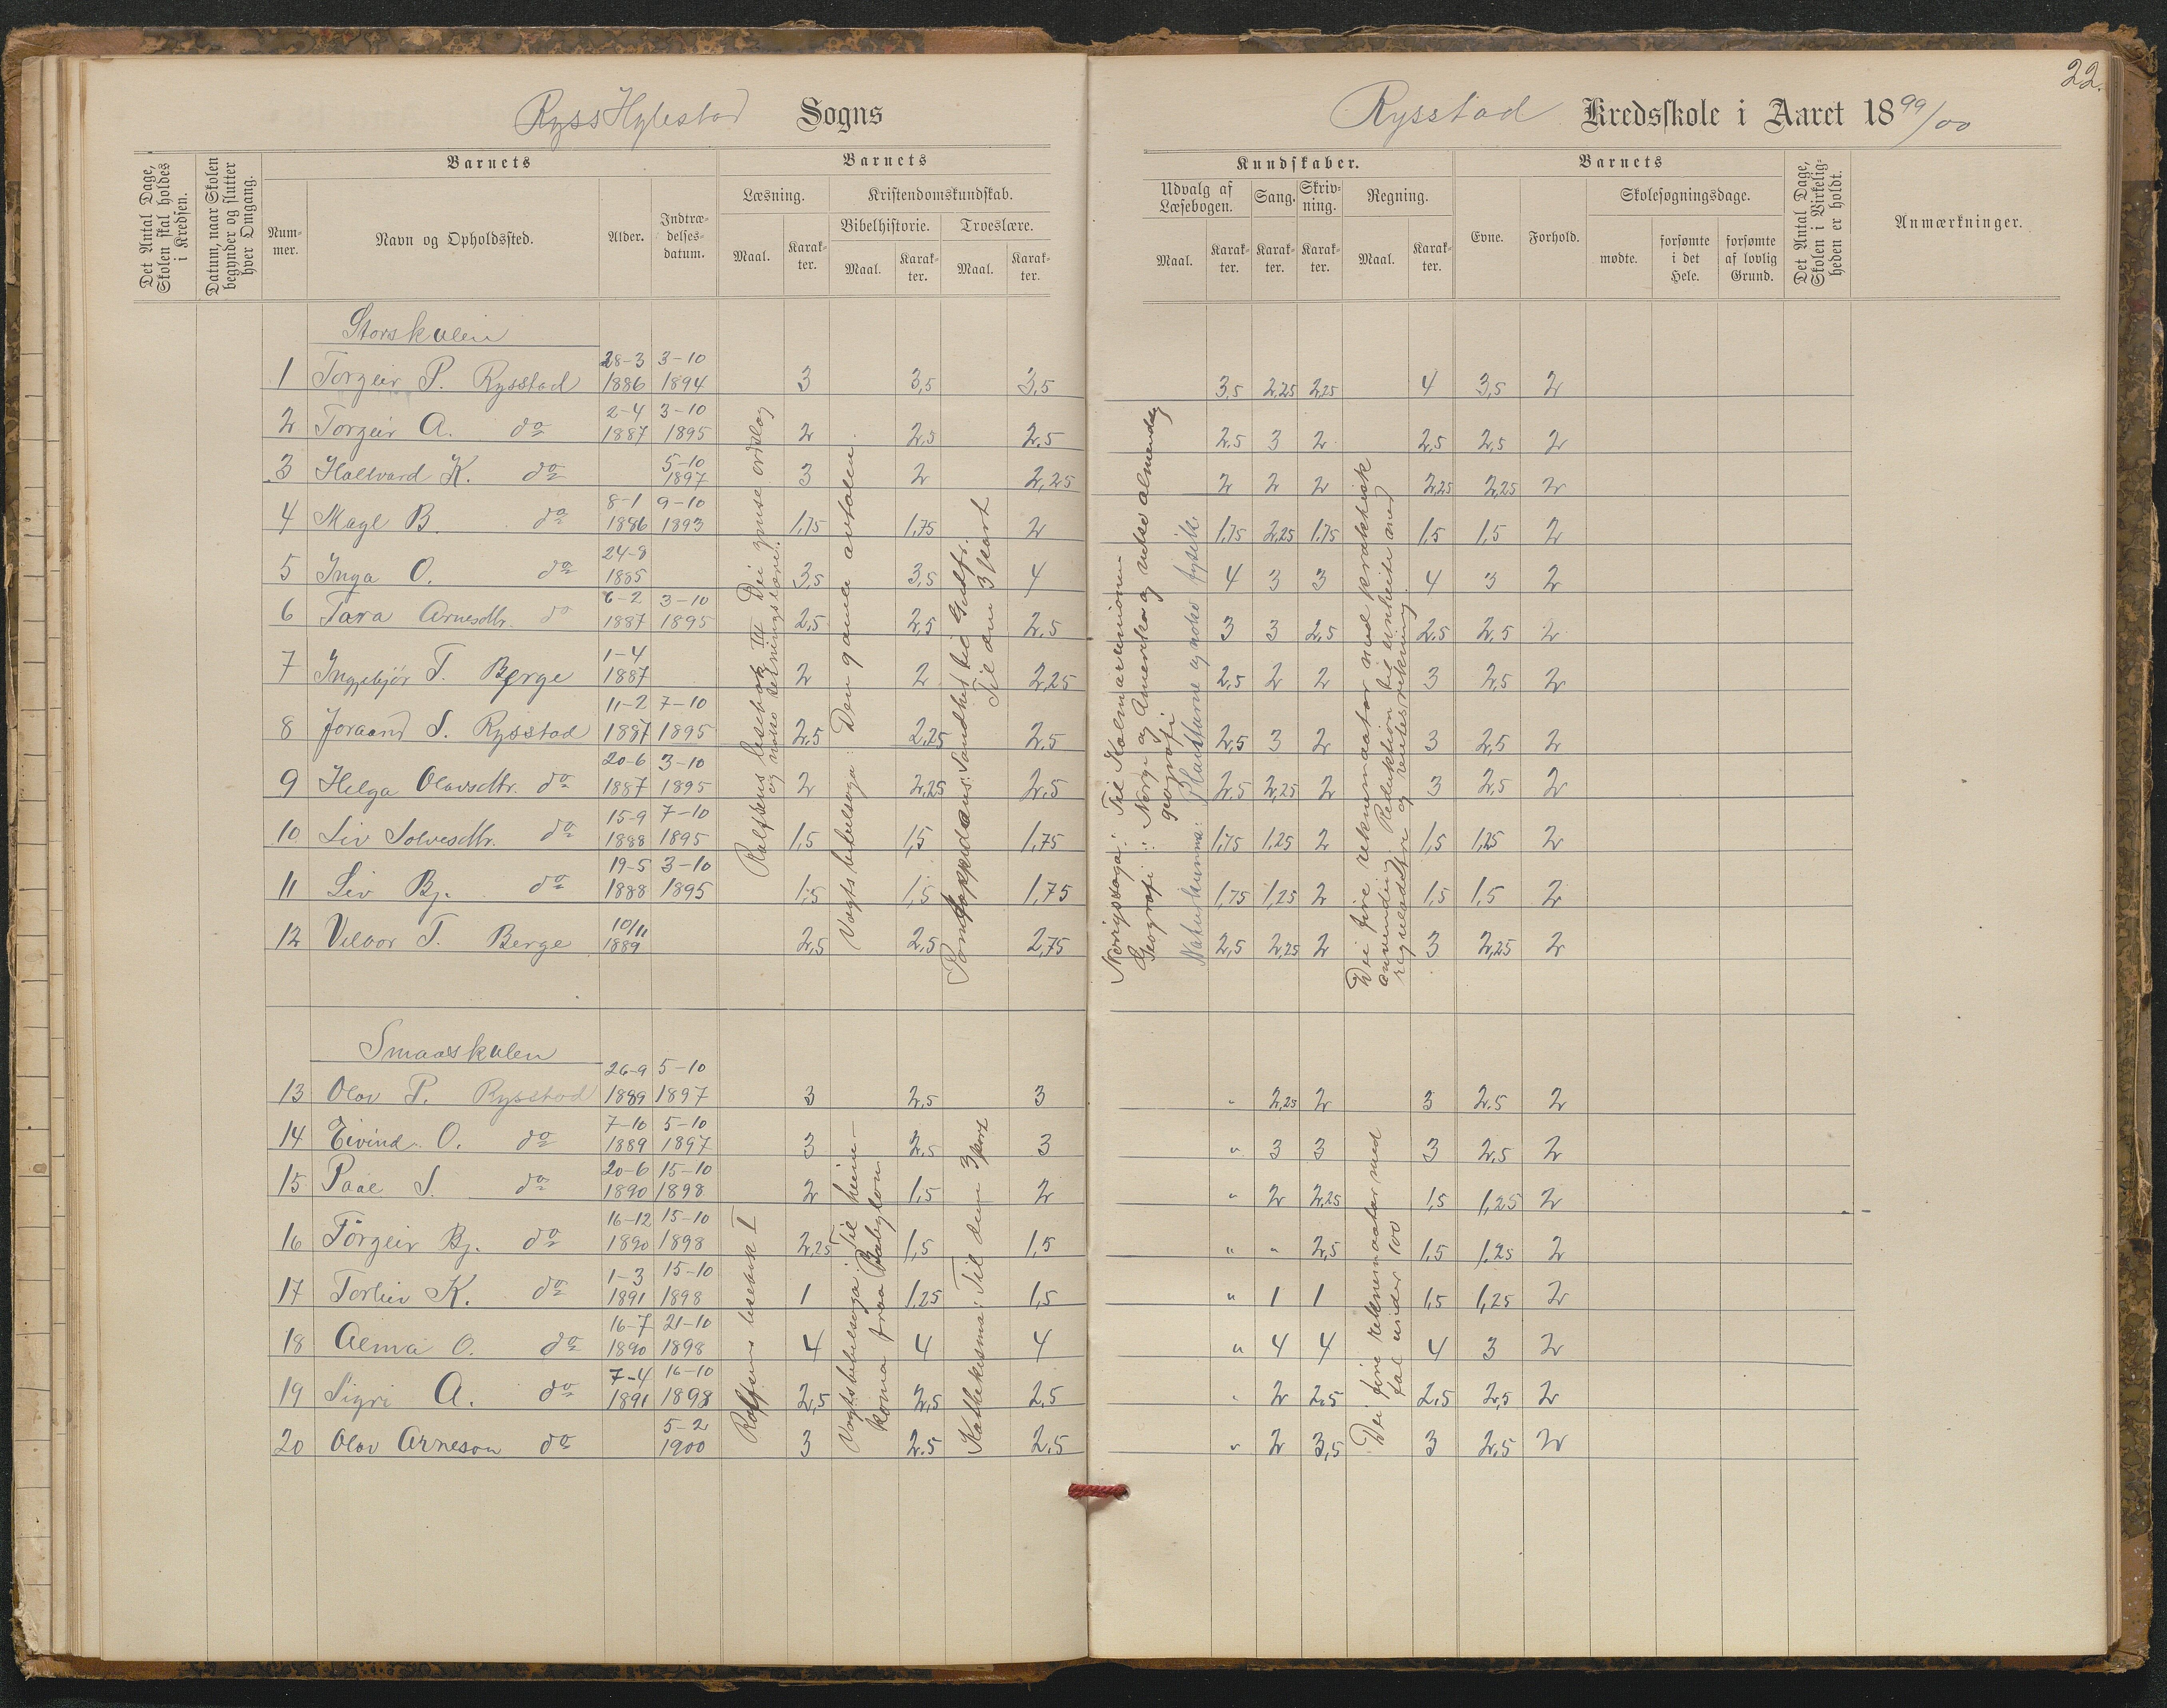 22.
Hylestad Sogns
Rysstad Kredsskole i Aaret 1899/00
Det Antal Dage, Skolen skal holdes i Kredsen.
Datum, naar Skolen begynder og slutter hver Omgang.
Barnets
Nummer.
Navn og Opholdssted.
Alder.
Indtrædelsesdatum.
Barnets
Læsning.
Maal.
Karakter.
Kristendomskundskab.
Bibelhistorie.
Maal.
Karakter.
Troeslære.
Maal.
Karakter.
Kundskaber.
Udvalg af Læsebogen.
Maal.
Karakter.
Sang.
Karakter.
Skrivning.
Karakter.
Regning.
Maal.
Karakter.
Barnets
Evne.
Forhold.
Skolesøgningsdage.
mødte.
forsømte i det Hele.
forsømte af lovlig Grund.
Det Antal Dage, Skolen i Virkeligheden er holdt.
Anmærkninger.
Storskulen
1 Torgeir P. Rysstad 28-3 1886 3-10 1894 3 3,5 3,5 3,5 2,25 2,25 4 3,5 2
2 Torgeir A. do 2-4 1887 3-10 1895 2 2,5 2,5 2,5 3 2 2,5 2,5 2
3 Hallvard K. do 5-10 1897 3 2 2,25 2 2 2 2,25 2,25 2
4 Magl B. do 8-1 1886 9-10 1893 1,75 1,75 2 1,75 2,25 1,75 1,5 1,5 2
5 Inga O. do 24-8 1885 3,5 3,5 4 4 3 3 4 3 2
6 Tara Arnesdtr. do 6-2 1887 3-10 1895 2,5 2,5 2,5 3 3 2,5 2,5 2,5 2
7 Ingebjör T. Berge 1-4 1887 2 2 2,25 2,5 2 2 3 2,5 2
8 Joraand S. Rysstad 11-2 1887 7-10 1895 2,5 2,25 2,5 2,5 3 2 3 2,5 2
9 Helga Olavsdtr. do 20-6 1887 3-10 1895 2 2,25 2,5 2,5 2,25 2 3 2,5 2
10 Liv Solvesdtr. do 15-9 1888 7-10 1895 1,5 1,5 1,75 1,75 1,25 2 1,5 1,25 2
11 Liv Bj. do 19-5 1888 3-10 1895 1,5 1,5 1,75 1,75 1,25 2 1,5 1,5 2
12 Vilbor T. Berge 10/11 1889 2,5 2,5 2,75 2,5 2,25 2 3 2,25 2
Rolfsens lesebok III Dei grense ordslag
og noko setningslære.
Vogts bibelsoga: Den gamle avtalen.
Pontoppidans: Sandhet tid Gudfr.
Til den 3 part
Norigssoga: Til Kalmarunionen
Geografi: Norge og Amerika og noko almendeleg
geografi
Naturkunna: Plantarne og noko fysikk.
Dei fire reknemaatar med praktisk
anvending. Reduktion til einheite med
reguladetri og rentesrekning.
Smaaskulen
13 Olav P. Rysstad 26-9 1889 5-10 1897 3 2,5 3 " 2,25 2 3 2,5 2
14 Eivind O. do 7-10 1889 5-10 1897 3 2,5 3 " 3 3 3 2,5 2
15 Paal S. do 20-6 1890 15-10 1898 2 1,5 2 " 2 2,25 1,5 1,25 2
16 Torgeir Bj. do 16-12 1890 15-10 1898 2,25 1,5 1,5 " " 2,5 1,5 1,25 2
17 Torleiv K. do 1-3 1891 15-10 1898 1 1,25 1,5 " 1 1 1,5 1,25 2
18 Alma O. do 16-7 1890 21-10 1898 4 4 4 " 4 4 4 3 2
19 Sigri A. do 7-4 1891 16-10 1898 2,5 2,5 2,5 " 2 2,5 2,5 2,5 2
20 Olav Arneson do 5-2 1900 3 2,5 2,5 " 2 3,5 3 2,5 2
Rolfsens lesebok I
Vogts bibelsoga: Til heim-
koma fraa Babylon
Kattekisma: Til den 3 part
Dei fire reknemaatar med
tal under 100